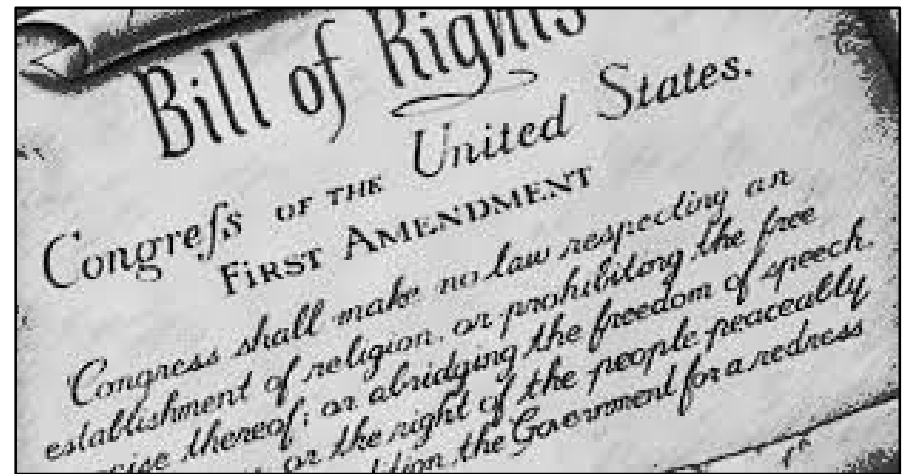 Bill of Rights
Congreſs OF THE United States.
FIRST AMENDMENT
Congress shall make no law respecting an
establishment of religion, or prohibiting the free
cise thereof; or abridging the freedom of speech,
or the right of the people peaceably
the Government for a redress